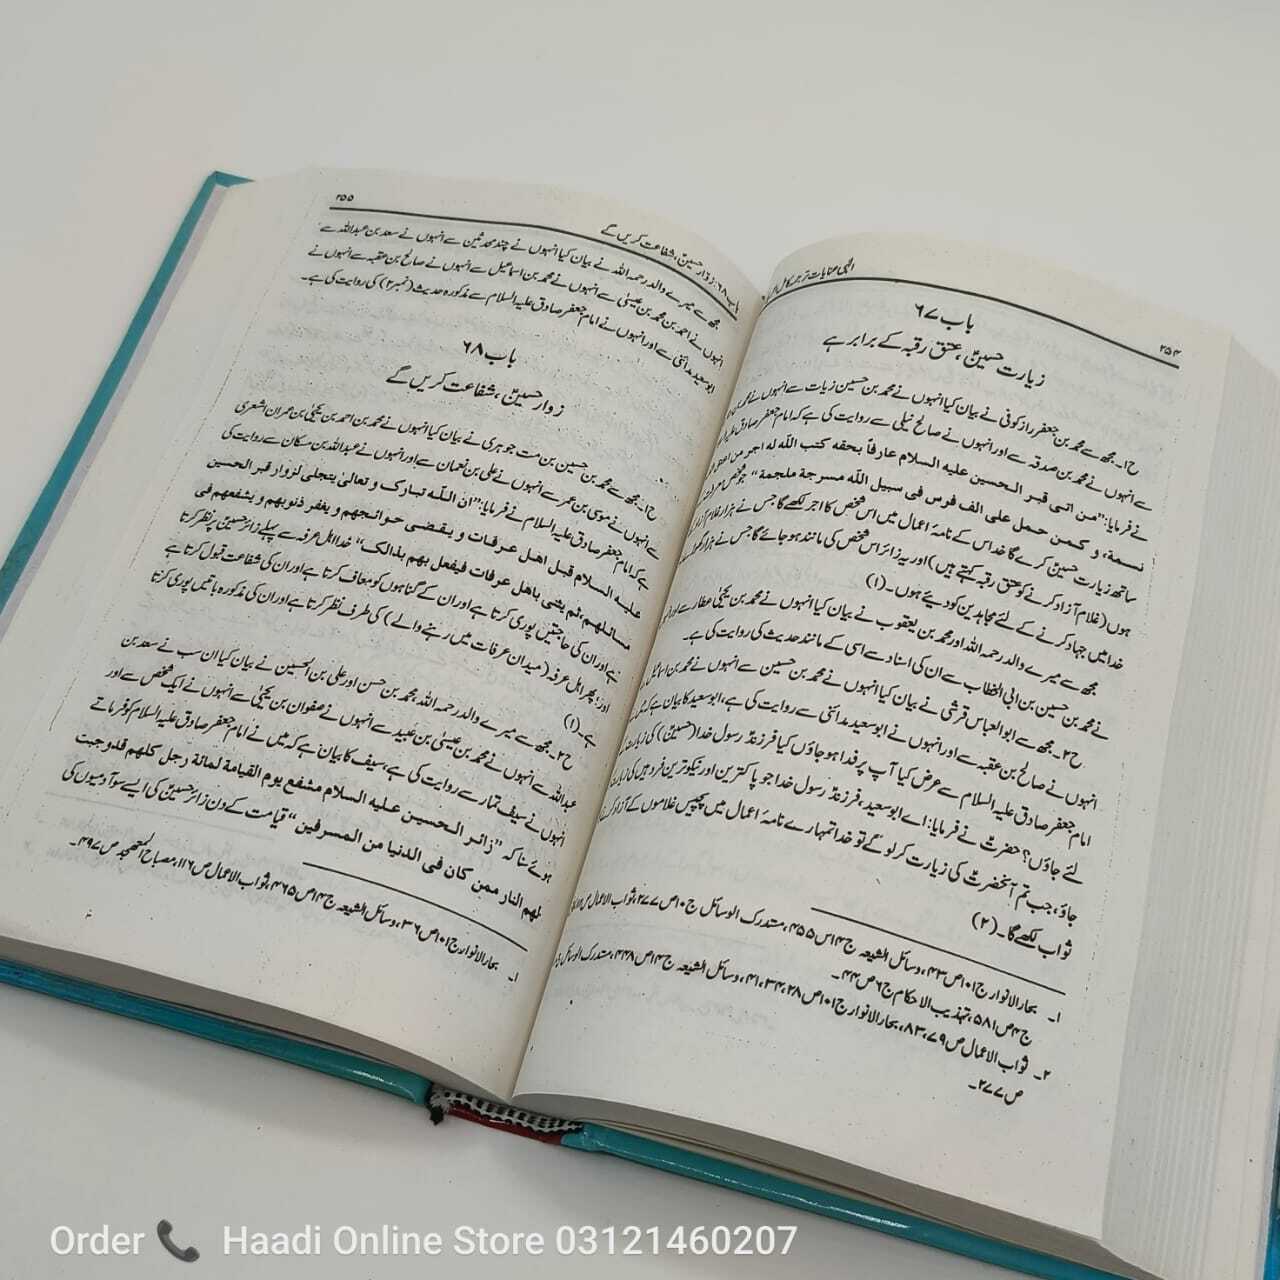 ۲۵۴
باب ۶۷
زیارت حسینؑ، عتق رقبہ کے برابر ہے
ح۱۔ مجھ سے محمد بن جعفر رزاز کوفی نے بیان کیا انہوں نے محمد بن حسین زیات سے انہوں نے
سے انہوں نے محمد بن صدقہ سے اور انہوں نے صالح نیلی سے روایت کی ہے کہ امام جعفر صادق علیہ السلام
نے فرمایا: "من اتی قبر الحسین علیہ السلام عارفاً بحقه کتب اللہ له اجر من اعتق
نسمة، و کمن حمل علی الف فرس فی سبیل اللہ مسرجة ملجمة" جو شخص معرفت
ساتھ زیارت حسینؑ کرے گا خدا اس کے نامۂ اعمال میں اس شخص کا اجر لکھے گا جس نے ہزار غلام آزاد
ہوں (غلام آزاد کرنے کو عتق رقبہ کہتے ہیں) اور یہ زائر اس شخص کی مانند ہو جائے گا جس نے ہزار گھوڑے
خدا میں جہاد کرنے کے لئے مجاہدین کو دیئے ہوں۔ (۱)
مجھ سے میرے والد رحمہ اللہ اور محمد بن یعقوب نے بیان کیا انہوں نے محمد بن یحییٰ عطار سے اور
نے محمد بن حسین بن ابی الخطاب سے ان کی اسناد سے اسی کے مانند حدیث کی روایت کی ہے۔
ح۲۔ مجھ سے ابو العباس قرشی نے بیان کیا انہوں نے محمد بن حسین سے انہوں نے محمد بن اسماعیل
انہوں نے صالح بن عقبہ سے اور انہوں نے ابو سعید مدائنی سے روایت کی ہے، ابو سعید کا بیان ہے کہ میں نے
امام جعفر صادق علیہ السلام سے عرض کیا آپ پر فدا ہو جاؤں کیا فرزند رسول خدا (حسینؑ) کی زیارت
لئے جاؤں؟ حضرتؑ نے فرمایا: اے ابو سعید، فرزند رسول خدا جو پاک ترین اور نیکو ترین فرد ہیں کی زیارت
جاؤ، جب تم آنحضرتؑ کی زیارت کر لو گے تو خدا تمہارے نامۂ اعمال میں پچیس غلاموں کے آزاد کرنے
ثواب لکھے گا۔ (۲)
۱۔ بحار الانوار ج۱۰۱ ص۴۳، وسائل الشیعہ ج۱۴ ص۴۵۵، مستدرک الوسائل ج۱۰ ص۲۷۷، ثواب الاعمال
ج۴ ص۵۸۱، تہذیب الاحکام ج۶ ص۴۴۔
۲۔ ثواب الاعمال ص۷۹، ۸۳، بحار الانوار ج۱۰۱ ص۲۸، ۳۴، ۴۱، وسائل الشیعہ ج۱۴ ص۴۴۸، مستدرک الوسائل
ص۲۷۷۔
باب ۶۸: زوار حسینؑ، شفاعت کریں گے ۲۵۵
مجھ سے میرے والد رحمہ اللہ نے بیان کیا انہوں نے چند محدثین سے انہوں نے سعد بن عبداللہ سے
انہوں نے احمد بن محمد بن عیسیٰ سے انہوں نے محمد بن اسماعیل سے انہوں نے صالح بن عقبہ سے انہوں نے
ابو سعید مدائنی سے اور انہوں نے امام جعفر صادق علیہ السلام سے مذکورہ حدیث (نمبر ۲) کی روایت کی ہے۔
باب ۶۸
زوار حسینؑ، شفاعت کریں گے
ح۱۔ مجھ سے محمد بن حسین بن مت جوہری نے بیان کیا انہوں نے محمد بن احمد بن یحییٰ بن عمران اشعری
سے انہوں نے موسیٰ بن عمر سے انہوں نے علی بن نعمان سے اور انہوں نے عبداللہ بن مسکان سے روایت کی
ہے کہ امام جعفر صادق علیہ السلام نے فرمایا: "ان اللہ تبارک و تعالیٰ یتجلی لزوار قبر الحسین
علیه السلام قبل اهل عرفات و یقضی حوائجهم و یغفر ذنوبهم و یشفعهم فی
مسائلهم، ثم یثنی باهل عرفات فیفعل بهم بذالک" خدا اہل عرفہ سے پہلے زائر حسینؑ پر نظر کرتا
ہے اور ان کی حاجتیں پوری کرتا ہے اور ان کے گناہوں کو معاف کرتا ہے اور ان کی شفاعت قبول کرتا ہے
اور؛ پھر اہل عرفہ (میدان عرفات میں رہنے والے) کی طرف نظر کرتا ہے اور ان کی مذکورہ باتیں پوری کرتا
ہے۔ (۱)
ح۲۔ مجھ سے میرے والد رحمہ اللہ، محمد بن حسن اور علی بن الحسین نے بیان کیا ان سب نے سعد بن
عبداللہ سے انہوں نے محمد بن عیسیٰ بن عبید سے انہوں نے صفوان بن یحییٰ سے انہوں نے ایک شخص سے اور
انہوں نے سیف تمار سے روایت کی ہے، سیف کا بیان ہے کہ میں نے امام جعفر صادق علیہ السلام کو فرماتے
ہوئے سنا کہ "زائر الحسین علیه السلام مشفع یوم القیامة لمائة رجل کلهم قد وجبت
لهم النار ممن کان فی الدنیا من المسرفین" قیامت کے دن زائر حسینؑ کی ایسے سو آدمیوں کی
۱۔ بحار الانوار ج۱۰۱ ص۳۶، وسائل الشیعہ ج۱۴ ص۴۶۵، ثواب الاعمال ص۱۱۶، مصباح المتھجد ص۴۹۷۔
Order 📞 Haadi Online Store 03121460207